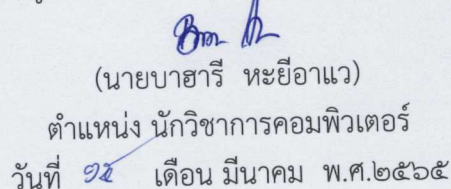 (นายบาฮารี หะยีอาแว)
ตำแหน่ง นักวิชาการคอมพิวเตอร์
วันที่ เดือน มีนาคม พ.ศ.๒๕๖๕